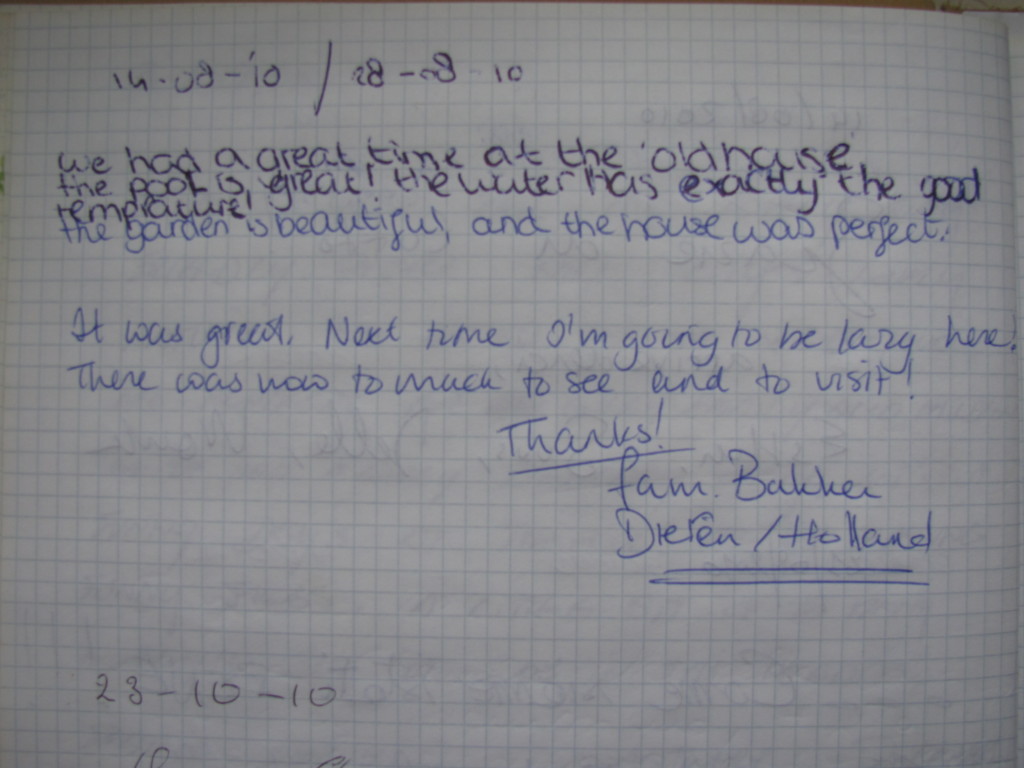 14-08-'10 / 28-08-10
we had a great time at the 'old house'
the pool is great! the winter has exactly the good
temprature!
the garden is beautiful, and the house was perfect.
It was great. Next time I'm going to be lazy here!
There was now to much to see and to visit!
Thanks!
fam. Bakker
Dieren / Holland
23-10-10